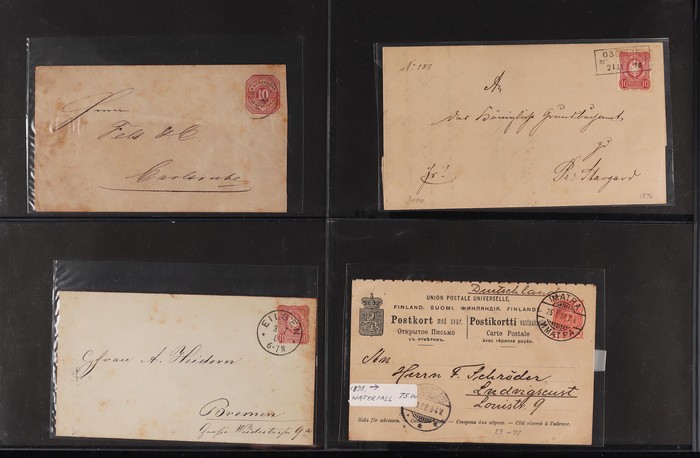 10
Herrn
Fels & C
Carlsruhe
No: 188
10
An
das Königliche Grundbuchamt
zu
Pr: Stargard
1876
EILSEN
6-7N
Frau A. Heidorn
Bremen
Große Weidestraße 9a
Deutschland
UNION POSTALE UNIVERSELLE.
FINLAND. SUOMI. ФИНЛЯНДІЯ.
Postkort med svar. Postikortti
Открытое Письмо Carte Postale
съ отвѣтомъ. avec réponse payée.
IMATRA
IMATRA
An
Herrn F. Schröder
Ludwigslust
Louistr. 9
1898 →
WATERFALL 75.00
Sida för adressen. Сторона для адреса. Côté réservé à l'adresse.